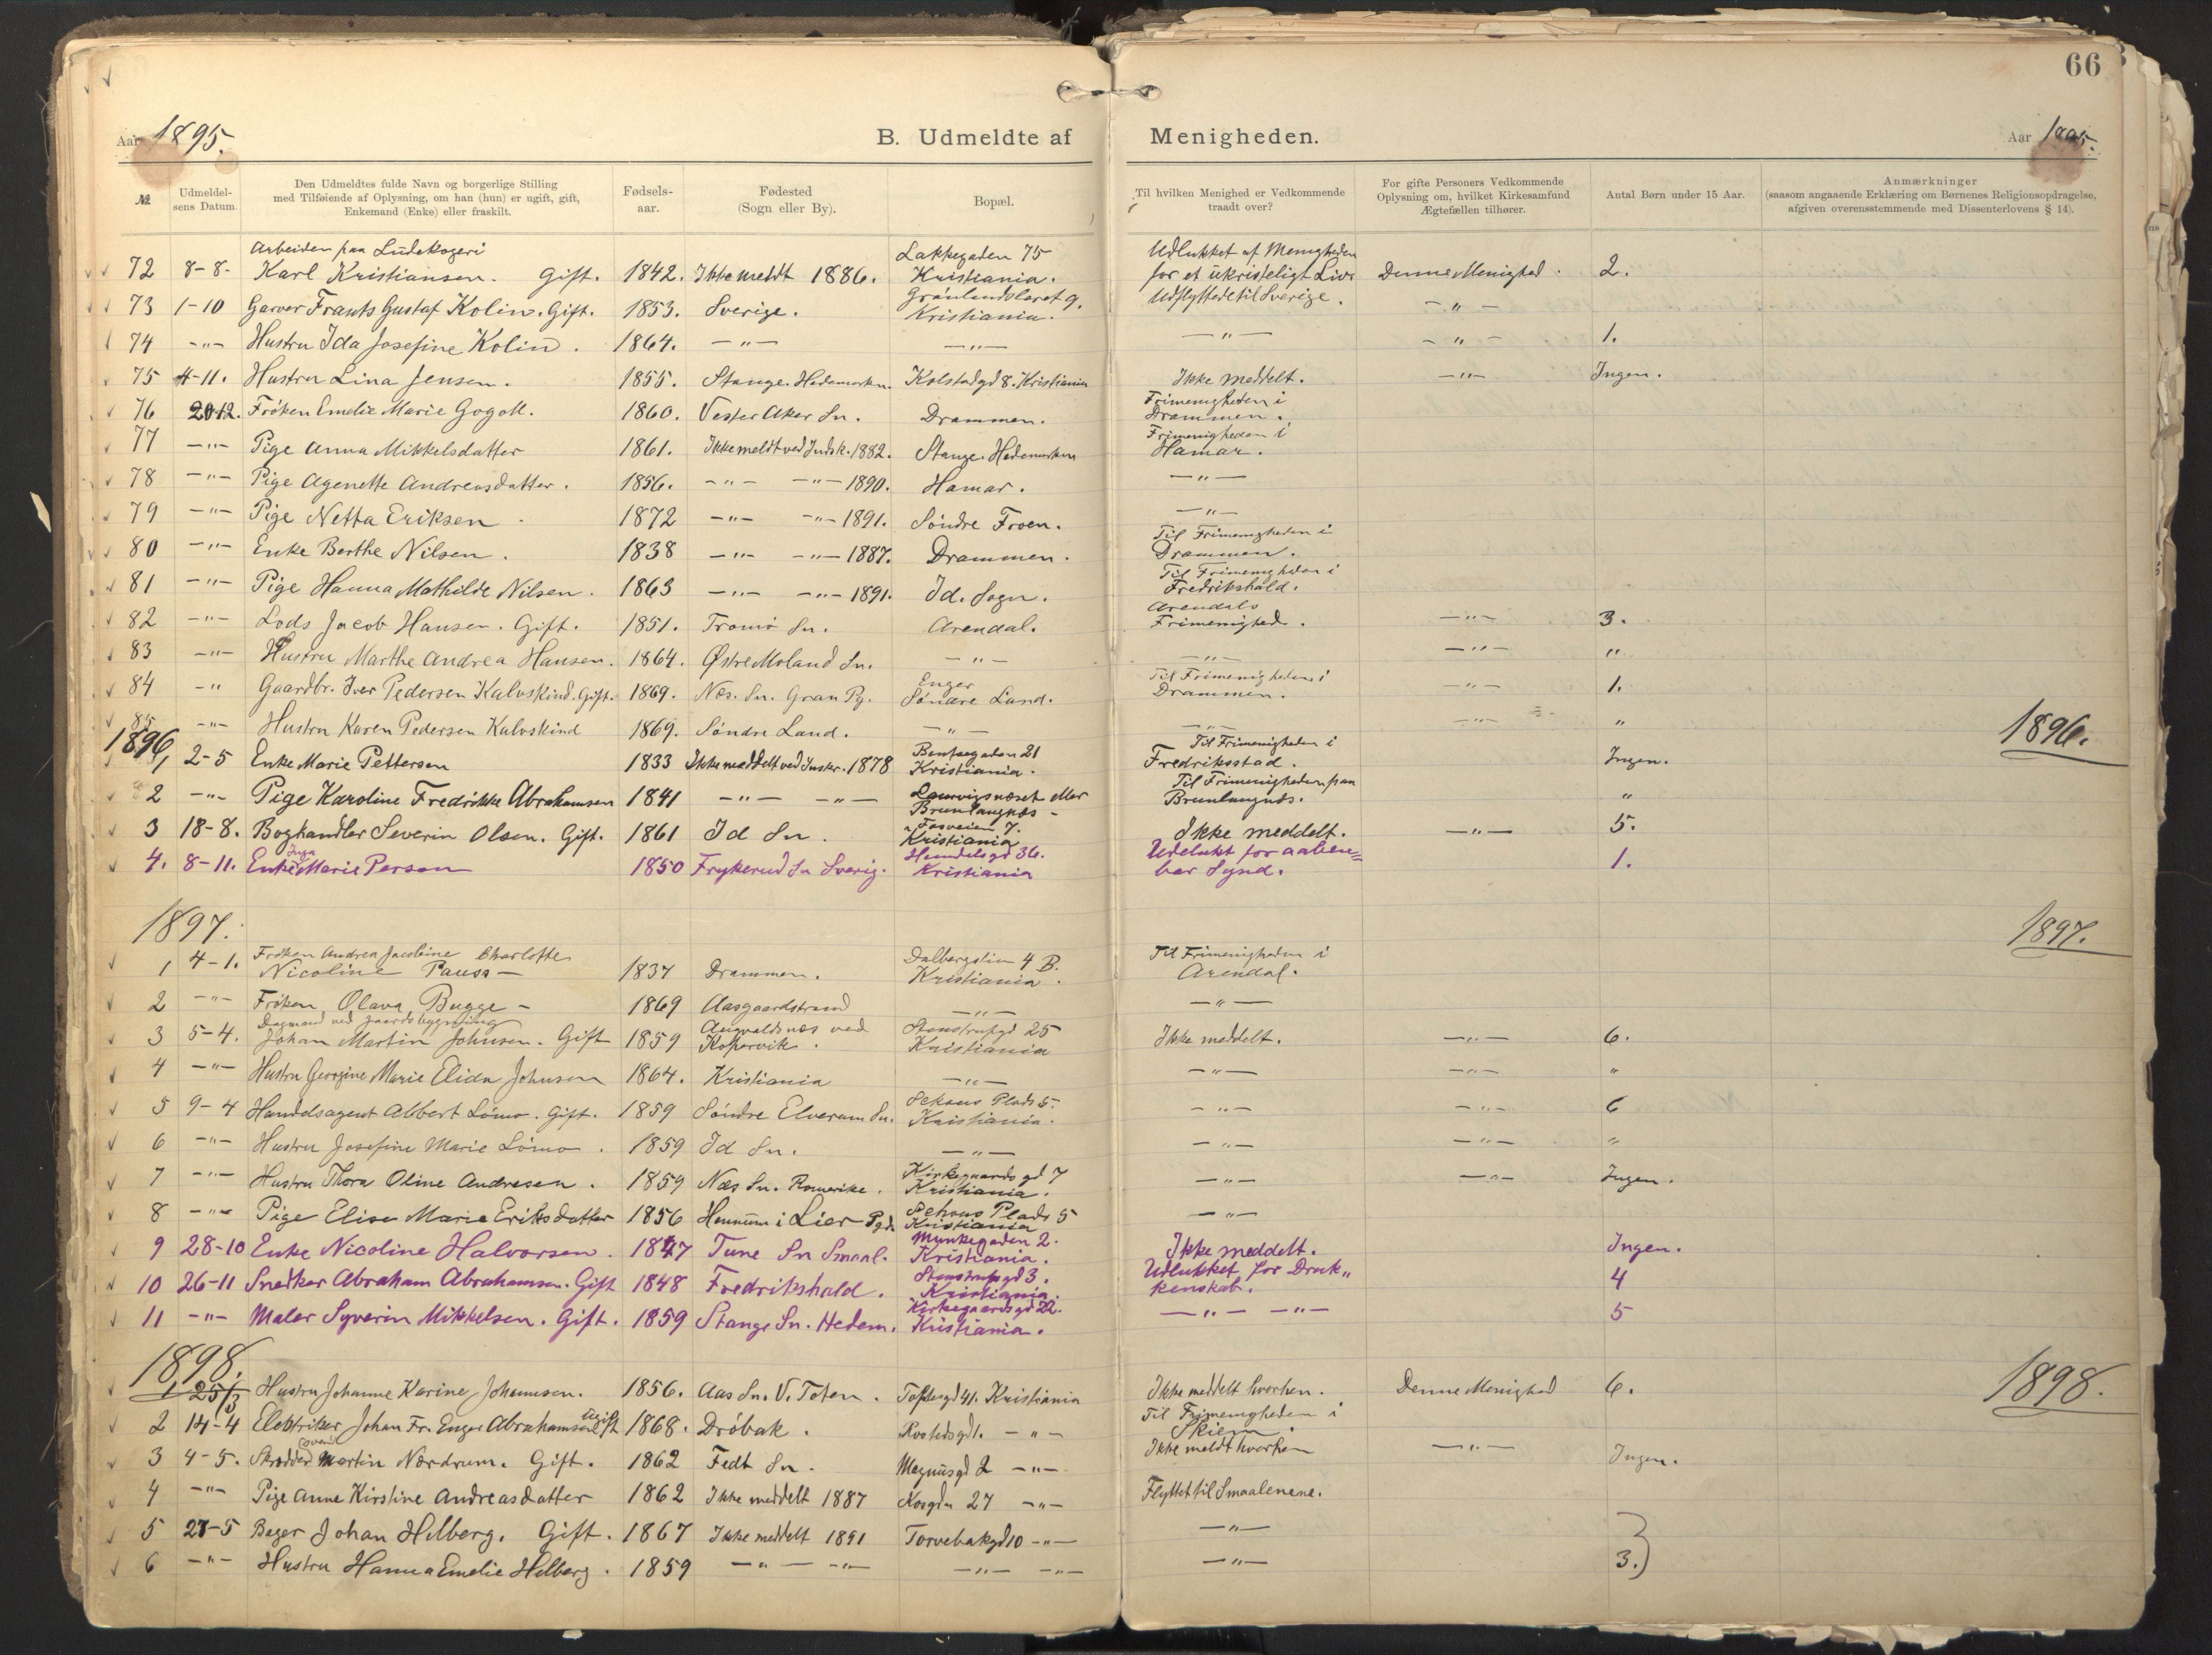 66
Aar 1895.
B. Udmeldte af Menigheden.
Aar 1895.
№ | Udmeldelsens Datum. | Den Udmeldtes fulde Navn og borgerlige Stilling med Tilføiende af Oplysning, om han (hun) er ugift, gift, Enkemand (Enke) eller fraskilt. | Fødselsaar. | Fødested (Sogn eller By). | Bopæl. | Til hvilken Menighed er Vedkommende traadt over? | For gifte Personers Vedkommende Oplysning om, hvilket Kirkesamfund Ægtefællen tilhører. | Antal Børn under 15 Aar. | Anmærkninger (saasom angaaende Erklæring om Børnenes Religionsopdragelse, afgiven overensstemmende med Dissenterlovens § 14).
72 8-8- Arbeider paa Ludekogeri Karl Kristiansen. Gift. 1842. Ikke meldt 1886. Lakkegaden 75 Kristiania. Udlukket af Menigheden for et ukristeligt Liv. Denne Menighed. 2.
73 1-10 Garver Frants Gustaf Kolin. Gift. 1853. Sverige. Grønlandsleret 9. Kristiania. Udflyttede til Sverige. -"-
74 -"- Hustru Ida Josefine Kolin. 1864. -"- -"- -"- -"- 1.
75 4-11. Hustru Lina Jensen. 1855. Stange. Hedemarken. Kolstadgd 8. Kristiania Ikke meddelt. -"- Ingen.
76 20-12. Frøken Emelie Marie Gogoll. 1860. Vester Aker Sn. Drammen. Frimenigheden i Drammen.
77 -"- Pige Anna Mikkelsdatter 1861. Ikke meldt ved Indsk. 1882. Stange. Hedemarken Frimenigheden i Hamar.
78 -"- Pige Agenette Andreasdatter. 1856. -"- -"- 1890. Hamar. -"-
79 -"- Pige Netta Eriksen. 1872 -"- -"- 1891. Søndre Froen. -"-
80 -"- Enke Berthe Nilsen. 1838 -"- -"- 1887. Drammen. Til Frimenigheden i Drammen.
81 -"- Pige Hanna Mathilde Nilsen. 1863 -"- -"- 1891. Id. Sogn. Til Frimenigheden i Fredrikshald.
82 -"- Lods Jacob Hansen. Gift. 1851. Tromø Sn. Arendal. Arendals Frimenighed. -"- 3.
83 -"- Hustru Marthe Andrea Hansen. 1864. Østre Moland Sn. -"- -"- -"- "
84 -" Gaardbr. Iver Pedersen Kalvskind. Gift. 1869. Næs. Sn. Gran Pg. Enger Søndre Land. Til Frimenigheden i Drammen. -"- 1.
85 -"- Hustru Karen Pedersen Kalvskind 1869. Søndre Land. -"- -"- -"- "
1896. 1896.
1 2-5 Enke Marie Pettersen 1833 Ikke meddelt ved Inskr. 1878 Bentsegaden 21 Kristiania. Til Frimenigheden i Fredriksstad. Ingen.
2 -"- Pige Karoline Fredrikke Abrahamsen 1841 -"- -"- Laurvigsnæset Brunlangnæs - Til Frimenigheden paa Brunlangnæs. "
3 18-8. Boghandler Severin Olsen. Gift. 1861 Id Sn. Fosveien 7. Kristiania Ikke meddelt. -"- 5.
4. 8-11. Enke Inga Marie Person 1850 Frykerud Sn Sverig. Kristiania Udelukt for aabenbar Synd. 1.
1897. 1897.
1 4-1. Frøken Andrea Jacobine Charlotte Nicoline Pauss - 1837 Drammen. Dalbergstien 4 B. Kristiania. Til Frimenigheden i Arendal.
2 -"- Frøken Olava Bugge - 1869 Aasgaardstrand -"- -"-
3 5-4. Dagmand ved gaardsbygning Johan Martin Johnsen. Gift 1859 Augvaldsnæs ved Kopervik. Stenstrupgd 25 Kristiania Ikke meddelt. -"- 6.
4 -"- Hustru Georgine Marie Elida Johnsen 1864. Kristiania -"- -"- -"- "
5 9-4 Handelsagent Albert Lømo. Gift. 1859 Søndre Elverum Sn. Sehous Plads 5. Kristiania. -"- -"- 6
6 -"- Hustru Josefine Marie Lømo. 1859 Id Sn. -"- -"- -"- "
7 -"- Hustru Thora Oline Andresen. 1859 Næs Sn. Romerike. Kirkegaardsgd 7 Kristiania. -"- -"- Ingen.
8 -"- Pige Elise Marie Eriksdatter 1856 i Lier Pgd. Sehous Plads 5 Kristiania -"-
9 28-10 Enke Nicoline Halvorsen. 1847 Tune Sn Smaal. Munkegaden 2. Kristiania. Ikke meddelt. Ingen.
10 26-11 Snedker Abraham Abrahamsen. Gift 1848 Fredrikshald. Stenstrupsgd 3. Kristiania. Udlukket for Drukkenskab. 4
11 -"- Maler Syverin Mikkelsen. Gift. 1859 Stange Sn. Hedem. Kirkegaardsgd 22. Kristiania. -"- -"- 5
1898. 1898.
1 25/3 Hustru Johanne Karine Johannsen. 1856. Aas Sn. V. Toten. Toftesgd 41. Kristiania Ikke meddelt hvorhen. Denne Menighed 6.
2 14-4 Elektriker Johan Fr. Enger Abrahamsen Ugift 1868. Drøbak. Rostedsgd 1. -"- Til Frimenigheden i Skien.
3 4-5. Skrædder svend Martin Nordrum. Gift. 1862 Fedt Sn. Magnusgd 2 -"- Ikke meldt hvorhen -"- Ingen.
4 -"- Pige Anne Kirstine Andreasdatter 1862 Ikke meddelt 1887 27 -"- Flyttet til Smaalenene.
5 27-5 Bager Johan Hilberg. Gift. 1867 Ikke meddelt 1891 Torvebakgd 10 -"- -"-
6 -"- Hustru Hanna Emelie Hilberg. 1859 -"- -"- -"- -"- -"- 3.